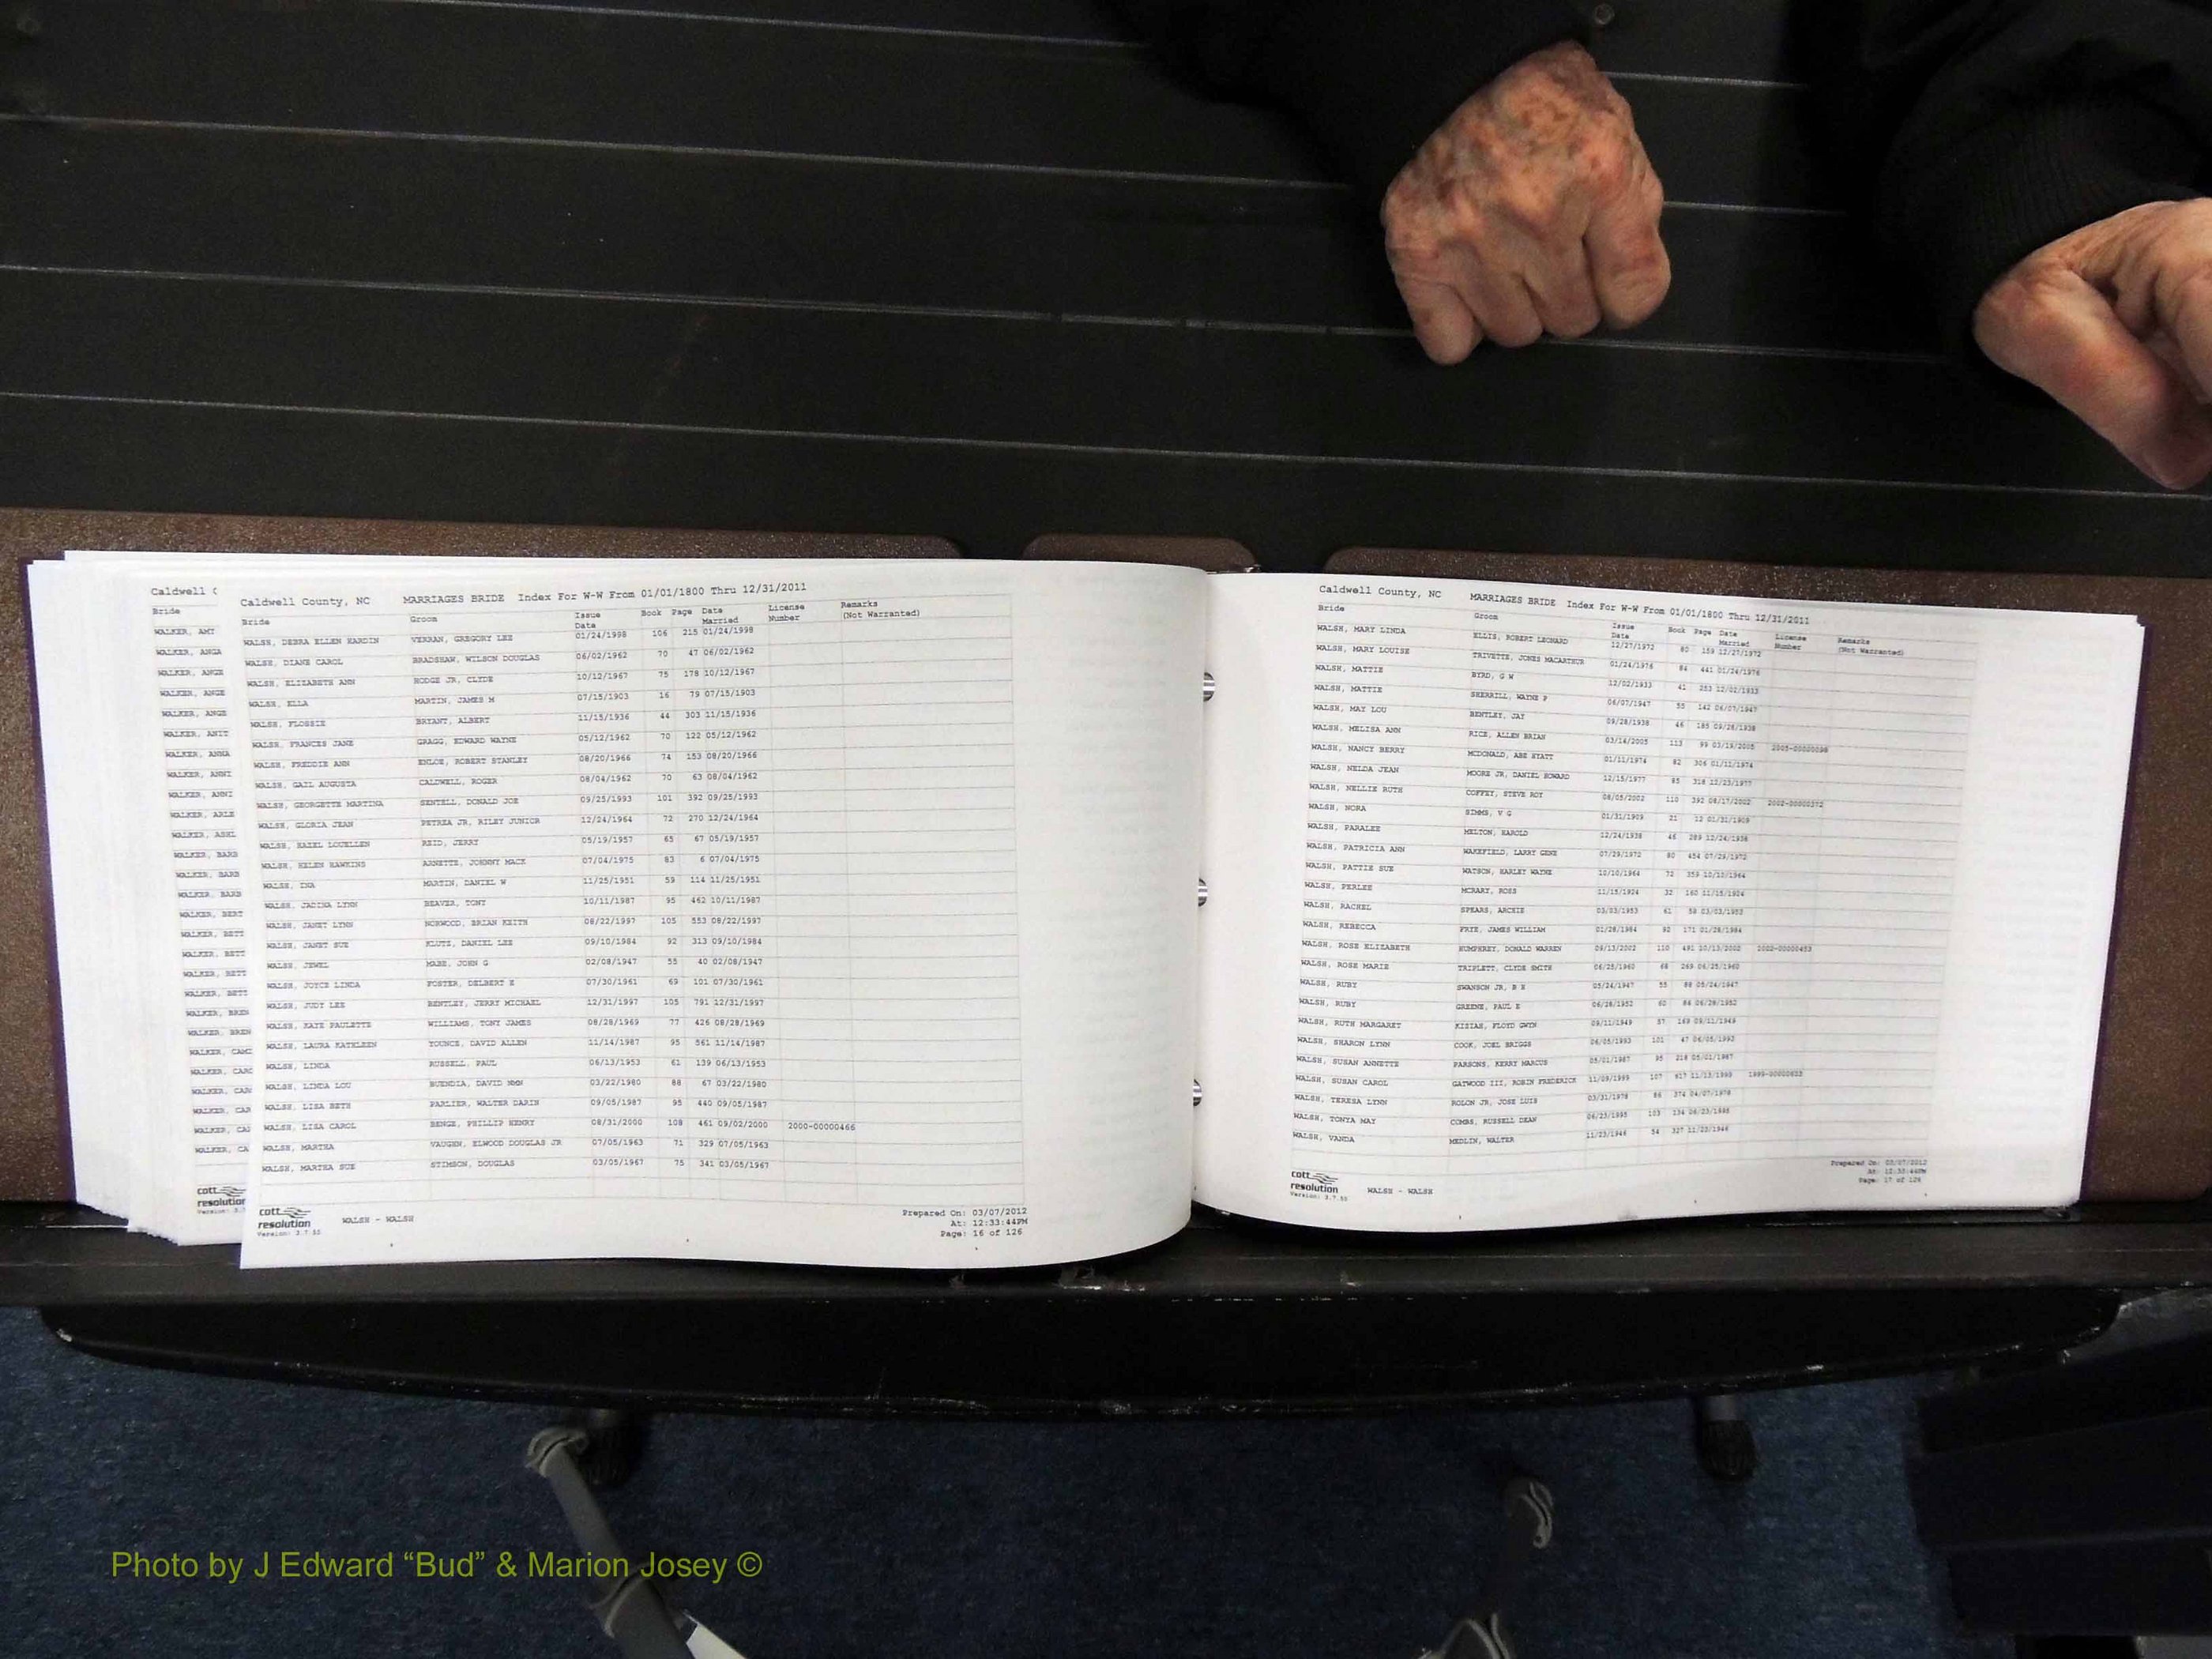 Caldwell C
Bride
WALKER, AMY
WALKER, ANGA
WALKER, ANGE
WALKER, ANGE
WALKER, ANGE
WALKER, ANIT
WALKER, ANNA
WALKER, ANNI
WALKER, ANNI
WALKER, ARLE
WALKER, ASHL
WALKER, BARB
WALKER, BARB
WALKER, BARB
WALKER, BERT
WALKER, BETT
WALKER, BETT
WALKER, BETT
WALKER, BETT
WALKER, BREN
WALKER, BREN
WALKER, CAMI
WALKER, CARO
WALKER, CAR
WALKER, CAR
WALKER, CA
WALKER, CA
cott
resolution
Caldwell County, NC MARRIAGES BRIDE Index For W-W From 01/01/1800 Thru 12/31/2011
Bride Groom Issue Date Book Page Date Married License Number Remarks (Not Warranted)
WALSH, DEBRA ELLEN HARDIN VERRAN, GREGORY LEE 01/24/1998 106 215 01/24/1998
WALSH, DIANE CAROL BRADSHAW, WILSON DOUGLAS 06/02/1962 70 47 06/02/1962
WALSH, ELIZABETH ANN HODGE JR, CLYDE 10/12/1967 75 178 10/12/1967
WALSH, ELLA MARTIN, JAMES M 07/15/1903 16 79 07/15/1903
WALSH, FLOSSIE BRYANT, ALBERT 11/15/1936 44 303 11/15/1936
WALSH, FRANCES JANE GRAGG, EDWARD WAYNE 05/12/1962 70 122 05/12/1962
WALSH, FREDDIE ANN ENLOE, ROBERT STANLEY 08/20/1966 74 153 08/20/1966
WALSH, GAIL AUGUSTA CALDWELL, ROGER 08/04/1962 70 63 08/04/1962
WALSH, GEORGETTE MARTINA SENTELL, DONALD JOE 09/25/1993 101 392 09/25/1993
WALSH, GLORIA JEAN PETREA JR, RILEY JUNIOR 12/24/1964 72 270 12/24/1964
WALSH, HAZEL LOUELLEN REID, JERRY 05/19/1957 65 67 05/19/1957
WALSH, HELEN HAWKINS ARNETTE, JOHNNY MACK 07/04/1975 83 6 07/04/1975
WALSH, INA MARTIN, DANIEL W 11/25/1951 59 114 11/25/1951
WALSH, JADINA LYNN BEAVER, TONY 10/11/1987 95 462 10/11/1987
WALSH, JANET LYNN NORWOOD, BRIAN KEITH 08/22/1997 105 553 08/22/1997
WALSH, JANET SUE KLUTZ, DANIEL LEE 09/10/1984 92 313 09/10/1984
WALSH, JEWEL MABE, JOHN G 02/08/1947 55 40 02/08/1947
WALSH, JOYCE LINDA FOSTER, DELBERT E 07/30/1961 69 101 07/30/1961
WALSH, JUDY LEE BENTLEY, JERRY MICHAEL 12/31/1997 105 791 12/31/1997
WALSH, KAYE PAULETTE WILLIAMS, TONY JAMES 08/28/1969 77 426 08/28/1969
WALSH, LAURA KATHLEEN YOUNCE, DAVID ALLEN 11/14/1987 95 561 11/14/1987
WALSH, LINDA RUSSELL, PAUL 06/13/1953 61 139 06/13/1953
WALSH, LINDA LOU BUENDIA, DAVID NMN 03/22/1980 88 67 03/22/1980
WALSH, LISA BETH PARLIER, WALTER DARIN 09/05/1987 95 440 09/05/1987
WALSH, LISA CAROL BENGE, PHILLIP HENRY 08/31/2000 108 461 09/02/2000 2000-00000466
WALSH, MARTHA VAUGHN, ELWOOD DOUGLAS JR 07/05/1963 71 329 07/05/1963
WALSH, MARTHA SUE STIMSON, DOUGLAS 03/05/1967 75 341 03/05/1967
cott
resolution
Version: 3.7.55
WALSH - WALSH
Prepared On: 03/07/2012
At: 12:33:44PM
Page: 16 of 126
Caldwell County, NC MARRIAGES BRIDE Index For W-W From 01/01/1800 Thru 12/31/2011
Bride Groom Issue Date Book Page Date Married License Number Remarks (Not Warranted)
WALSH, MARY LINDA ELLIS, ROBERT LEONARD 12/27/1972 80 159 12/27/1972
WALSH, MARY LOUISE TRIVETTE, JONES MACARTHER 01/24/1976 84 441 01/24/1976
WALSH, MATTIE BYRD, G W 12/02/1933 41 253 12/02/1933
WALSH, MATTIE SHERRILL, WAYNE P 06/07/1947 55 142 06/07/1947
WALSH, MAY LOU BENTLEY, JAY 09/28/1938 46 185 09/28/1938
WALSH, MELISA ANN RICE, ALLEN BRIAN 03/14/2005 113 99 03/19/2005 2005-00000098
WALSH, NANCY BERRY MCDONALD, ABE HYATT 01/11/1974 82 306 01/12/1974
WALSH, NELDA JEAN MOORE JR, DANIEL HOWARD 12/15/1977 85 318 12/23/1977
WALSH, NELLIE RUTH COFFEY, STEVE ROY 08/05/2002 110 392 08/17/2002 2002-00000372
WALSH, NORA SIMMS, V G 01/31/1909 21 12 01/31/1909
WALSH, PARALEE MELTON, HAROLD 12/24/1938 46 289 12/24/1938
WALSH, PATRICIA ANN WAKEFIELD, LARRY GENE 07/29/1972 80 454 07/29/1972
WALSH, PATTIE SUE WATSON, HARLEY WAYNE 10/10/1964 72 359 10/10/1964
WALSH, PERLEE MCRARY, ROSS 11/15/1924 32 160 11/15/1924
WALSH, RACHEL SPEARS, ARCHIE 03/03/1953 61 58 03/03/1953
WALSH, REBECCA FRYE, JAMES WILLIAM 01/28/1984 92 171 01/28/1984
WALSH, ROSE ELIZABETH HUMPHREY, DONALD WARREN 09/13/2002 110 491 10/13/2002 2002-00000453
WALSH, ROSE MARIE TRIPLETT, CLYDE SMITH 06/25/1960 68 269 06/25/1960
WALSH, RUBY SWANSON JR, B H 05/24/1947 55 88 05/24/1947
WALSH, RUBY GREENE, PAUL E 06/28/1952 60 84 06/28/1952
WALSH, RUTH MARGARET KISIAH, FLOYD GWYN 09/11/1949 57 169 09/11/1949
WALSH, SHARON LYNN COOK, JOEL BRIGGS 06/05/1993 101 47 06/05/1993
WALSH, SUSAN ANNETTE PARSONS, KERRY MARCUS 05/01/1987 95 218 05/01/1987
WALSH, SUSAN CAROL GATWOOD III, ROBIN FREDERICK 11/09/1999 107 617 11/13/1999 1999-00000623
WALSH, TERESA LYNN ROLON JR, JOSE LUIS 03/31/1978 86 374 04/07/1978
WALSH, TONYA MAY COMBS, RUSSELL DEAN 06/23/1995 103 134 06/23/1995
WALSH, VANDA MEDLIN, WALTER 11/23/1946 54 327 11/23/1946
cott
resolution
Version: 3.7.55
WALSH - WALSH
Prepared On: 03/07/2012
At: 12:33:44PM
Page: 17 of 126
Photo by J Edward “Bud” & Marion Josey ©